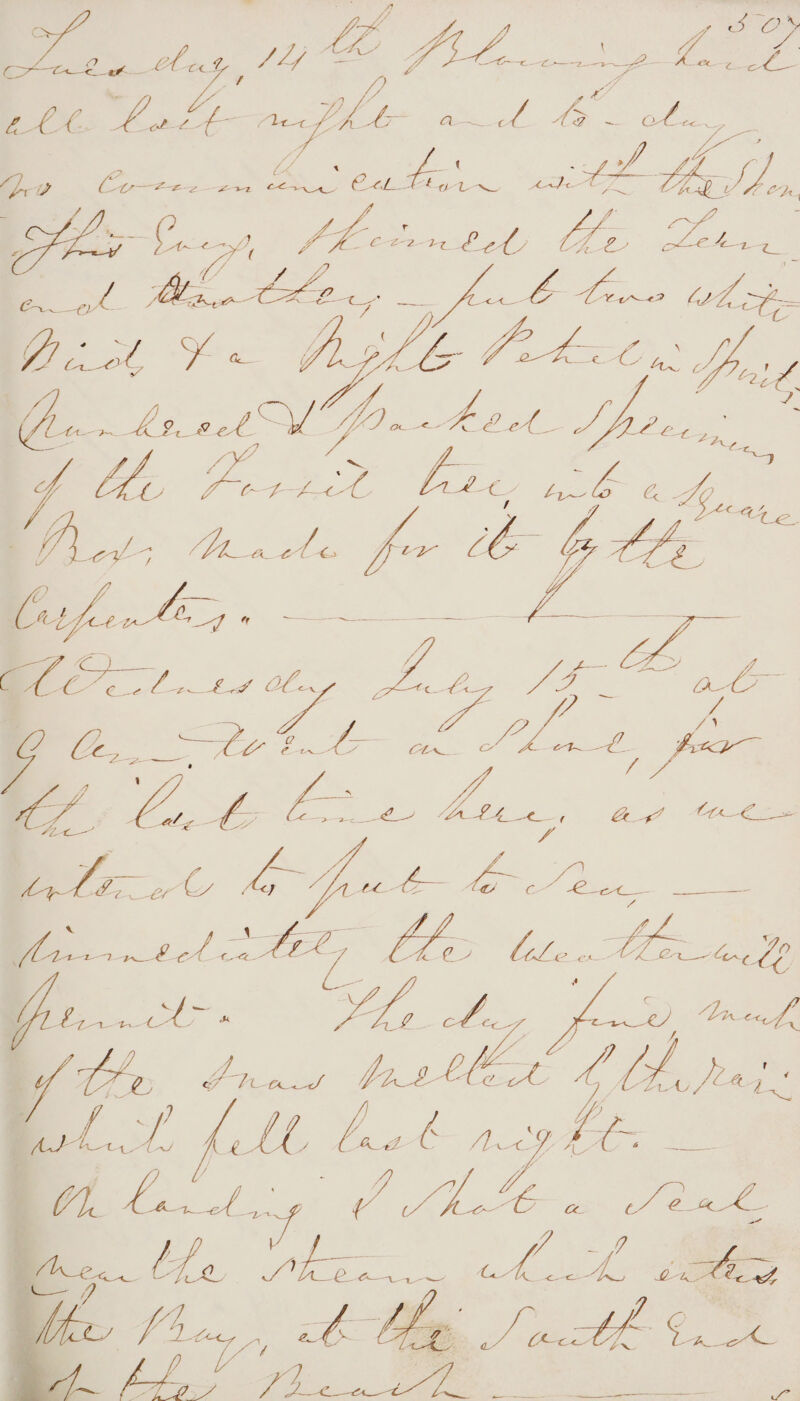 507
Tuesday, 14th Blowing hard
all last night and to-day
no communication with the Shore
This Eveng, Skinned the Tern
and another; — put two white
Birds & a Night Petrel in Spirits
Numbered & packed Specimens
of the Fossil tree, into a Square
Box; Made for it by the
Carpenters. —
Wednesday July 15th at
9 am. Went on Shore, for
the last time here, as we
intend to put to Sea, —
immediately the Weather will
permit. The day fine, much
of the Snow melted by the rain
which fell last night. —
On landing I Shot a Seal,
near the Stream which enters
the Bay, at the South End
of the Beach —